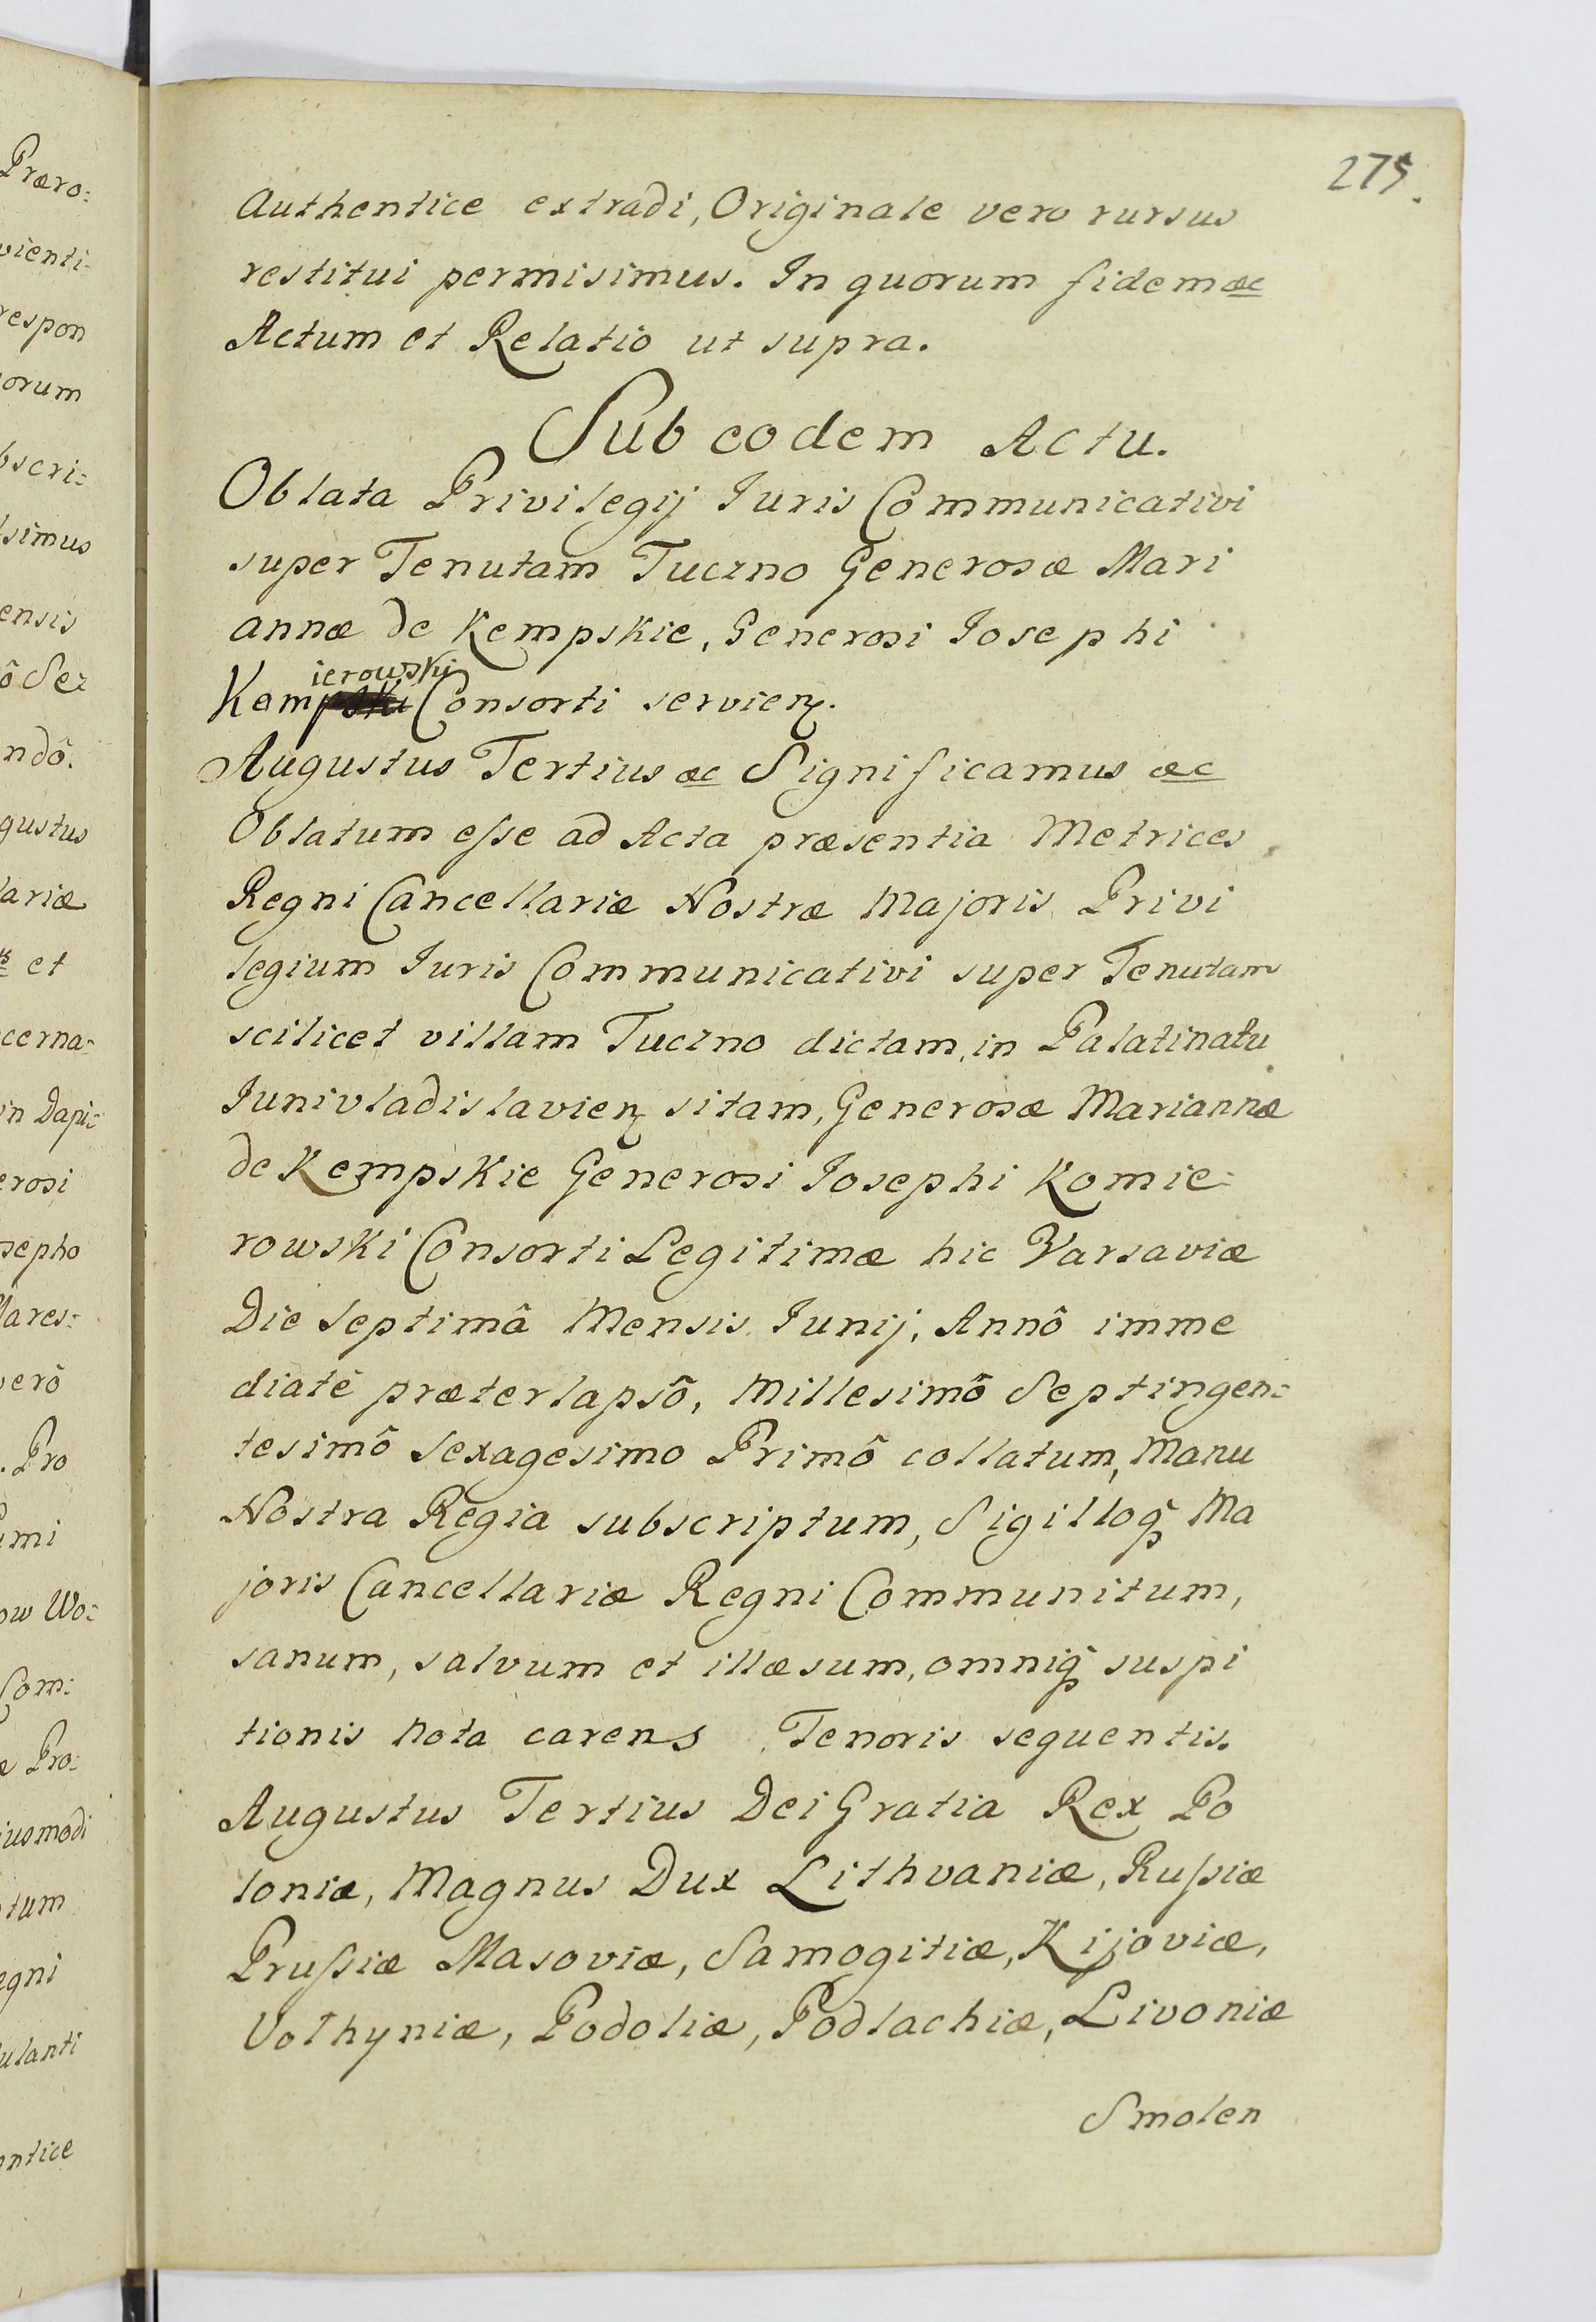 275.
Authentice extradi, Originale vero rursus
restitui permisimus. In quorum fidem &c
Actum et Relatio ut supra.
Sub eodem Actu.
Oblata Privilegij Iuris Communicativi
super Tenutam Tuczno Generosæ Mari
annæ de Kempskie, Generosi Iosephi
ierowski
Kom Consorti servien.
Augustus Tertius &c Significamus &c
Oblatum eſse ad Acta præsentia Metrices
Regni Cancellariæ Nostræ Majoris Privi
legium Iuris Communicativi super Tenutam
scilicet villam Tuczno dictam, in Palatinatu
Iunivladislavien sitam, Generosæ Mariannæ
de Kempskie Generosi Iosephi Komie:
rowski Consorti Legitimæ hic Varsaviæ
Die Septimâ Mensis Iunij, Annô imme
diatè præterlapsô, Millesimô Septingen:
tesimô Sexagesimo Primô collatum, Manu
Nostra Regia subscriptum, Sigilloq Ma
joris Cancellariæ Regni Communitum,
sanum, salvum et illæsum, omniq suspi
tionis nota carens Tenoris sequentis.
Augustus Tertius Dei Gratia Rex Po
loniæ, Magnus Dux Lithvaniæ, Ruſsiæ
Pruſsiæ Masoviæ, Samogitiæ, Kijoviæ,
Volhyniæ, Podoliæ, Podlachiæ, Livoniæ
Smolen
Præro:
vienti:
respon
orum
bscri:
simus
ensis
ô Sez
ndô.
gustus
lariæ
et
cerna:
in Dapi:
erosi
sepho
Mares:
verô
. Pro
imi
ow Wo:
Com:
e Pro:
iusmodi
tum
egni
ulanti
entice